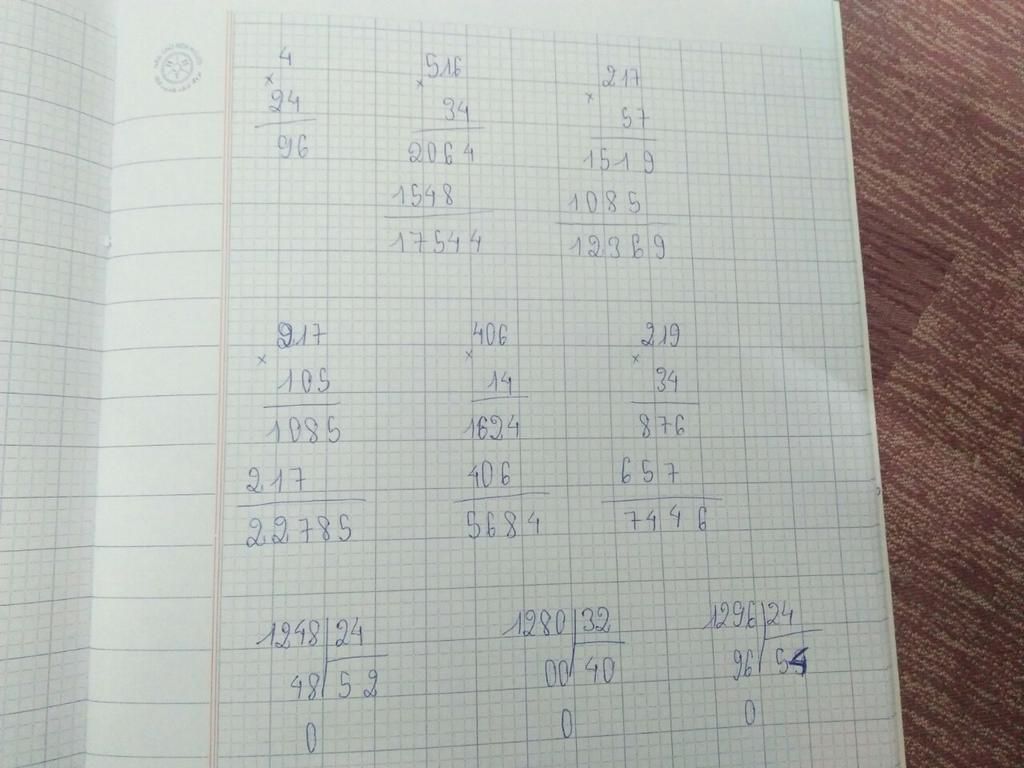 4 516 217
× × ×
24 34 57
96 2064 1519
1548 1085
17544 12369
217 406 219
× × ×
105 14 34
1085 1624 876
217 406 657
22785 5684 7446
1248 24 1280 32 1296 24
48 52 00 40 96 54
0 0 0